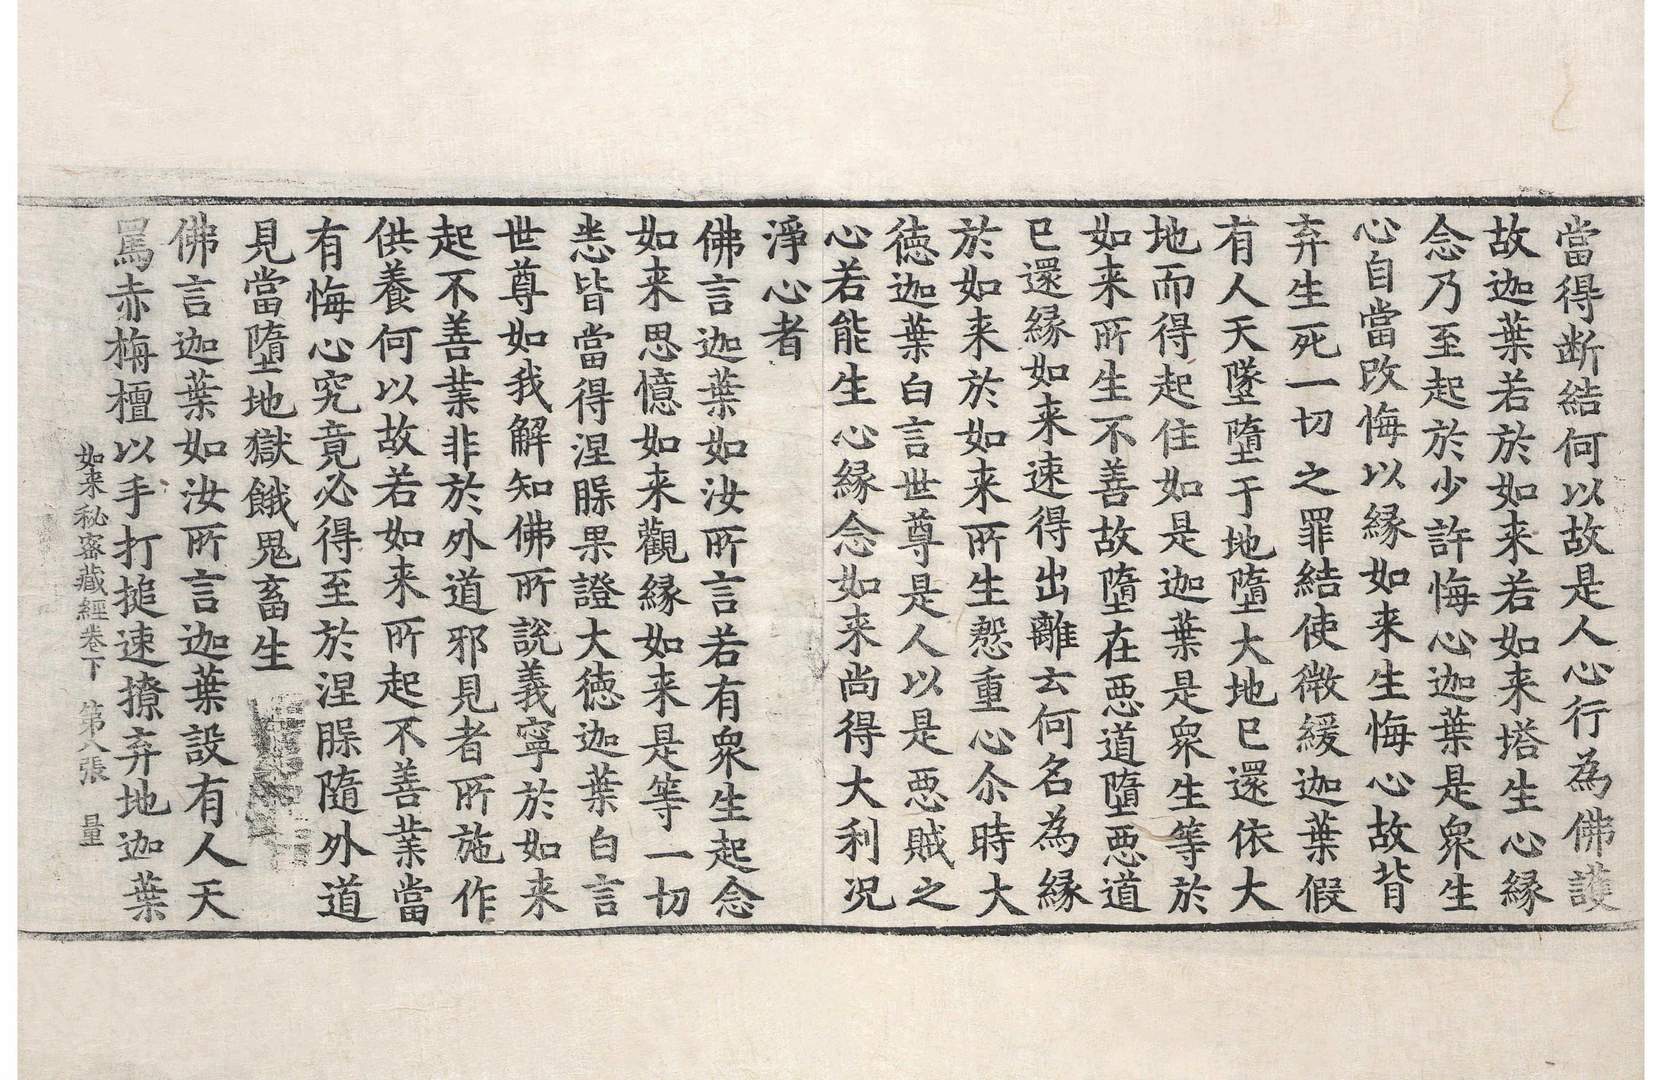 當得断結何以故是人心行為佛護
故迦葉若於如来若如来塔生心縁
念乃至起於少許悔心迦葉是衆生
心自當改悔以縁如来生悔心故背
弃生死一切之罪結使微緩迦葉假
有人天墜墮于地墮大地已還依大
地而得起住如是迦葉是衆生等於
如来所生不善故墮在惡道墮惡道
已還縁如来速得出離云何名為縁
於如来於如来所生慇重心尒時大
徳迦葉白言世尊是人以是惡賊之
心若能生心縁念如来尚得大利况
淨心者
佛言迦葉如汝所言若有衆生起念
如来思憶如来觀縁如来是等一切
悉皆當得涅槃果證大徳迦葉白言
世尊如我解知佛所說義寧於如来
起不善業非於外道邪見者所施作
供養何以故若如来所起不善業當
有悔心究竟必得至於涅槃隨外道
見當墮地獄餓鬼畜生
佛言迦葉如汝所言迦葉設有人天
罵赤栴檀以手打搥速撩弃地迦葉
如来秘密藏經卷下 第八張 量